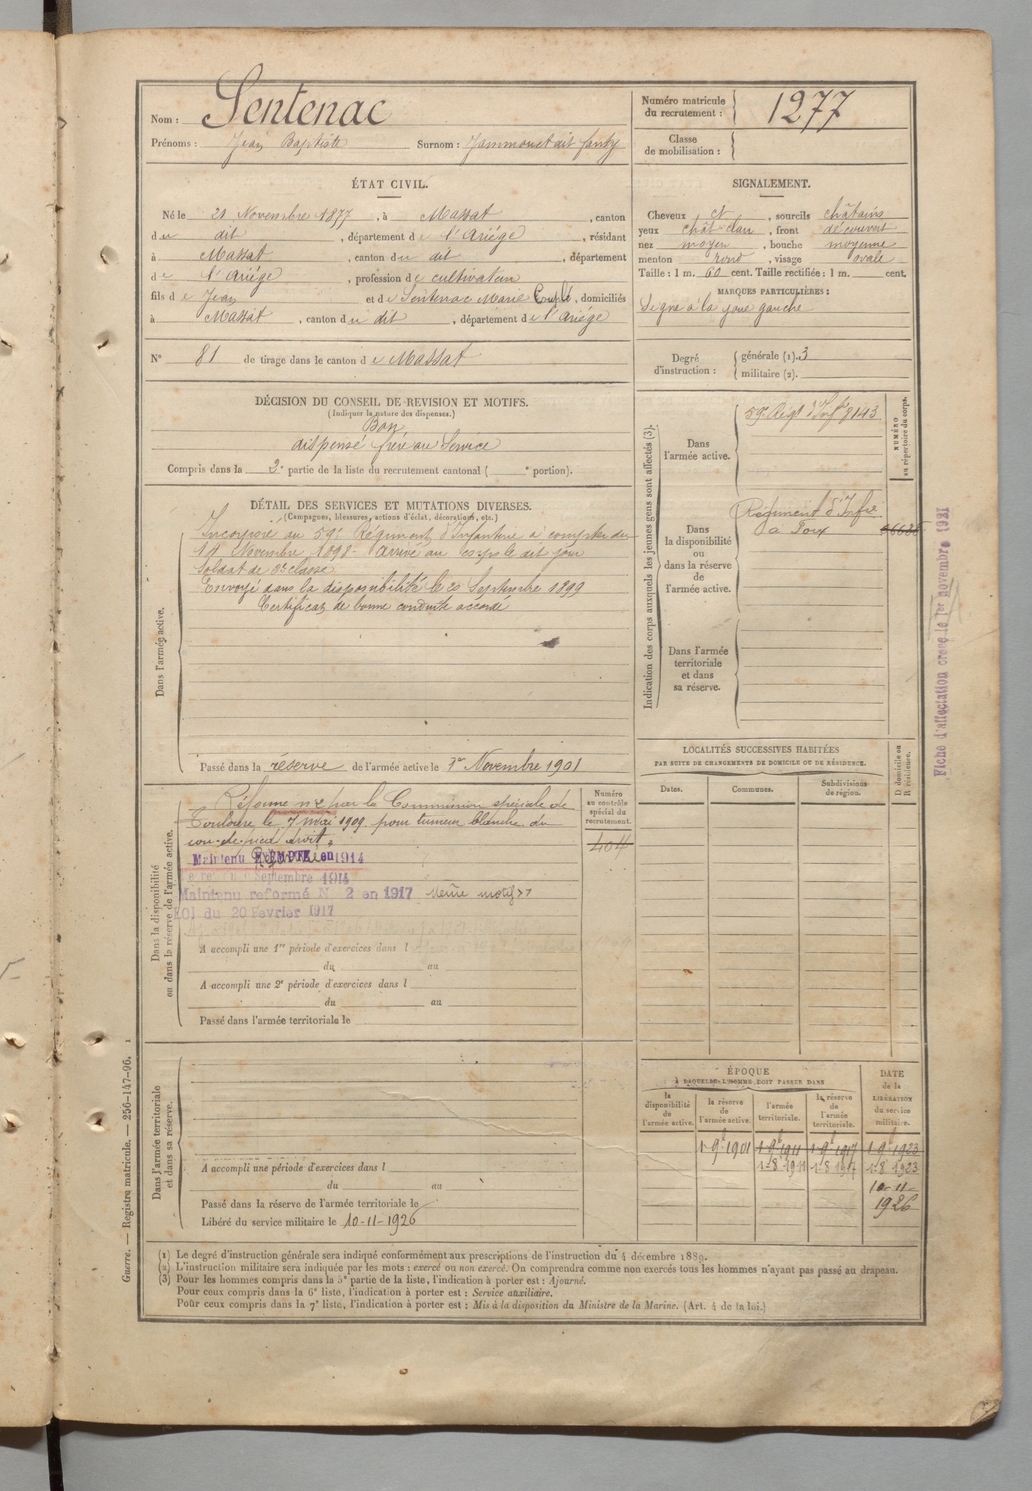 Nom : Sentenac
Prénoms : Jean Baptiste Surnom :
Numéro matricule du recrutement : 1277
Classe de mobilisation :
ÉTAT CIVIL.
Né le 21 Novembre 1877, à Massat, canton
du dit, département de l'Ariège, résidant
à Massat, canton du dit, département
de l'Ariège, profession de cultivateur
fils de Jean et de Sentenac Marie, domiciliés
à Massat, canton du dit, département de l'Ariège
N° 81 de tirage dans le canton de Massat
SIGNALEMENT.
Cheveux et, sourcils châtains
yeux chât clair, front découvert
nez moyen, bouche moyenne
menton rond, visage ovale
Taille : 1 m. 60 cent. Taille rectifiée : 1 m. cent.
MARQUES PARTICULIÈRES :
Signe à la joue gauche
Degré d'instruction : générale (1). 3
militaire (2).
DÉCISION DU CONSEIL DE REVISION ET MOTIFS.
(Indiquer la nature des dispenses.)
Bon
dispensé frère au Service
Compris dans la 2e partie de la liste du recrutement cantonal ( e portion).
DÉTAIL DES SERVICES ET MUTATIONS DIVERSES.
(Campagnes, blessures, actions d'éclat, décorations, etc.)
Dans l'armée active.
Incorporé au 59e Régiment d'Infanterie à compter du
11 Novembre 1898. Arrivé au corps le dit jour
Soldat de 2e classe
Envoyé dans la disponibilité le 20 Septembre 1899
Certificat de bonne conduite accordé
Passé dans la réserve de l'armée active le 1er Novembre 1901
Indication des corps auxquels les jeunes gens sont affectés (3).
NUMÉRO au répertoire du corps.
Dans l'armée active.
59e Régt d'Infie 8143
Dans la disponibilité ou dans la réserve de l'armée active.
Régiment d'Infie
à Foix
Dans l'armée territoriale et dans sa réserve.
Fiche d'affectation créée le 1er novembre 1921
LOCALITÉS SUCCESSIVES HABITÉES
PAR SUITE DE CHANGEMENTS DE DOMICILE OU DE RÉSIDENCE.
Dates. Communes. Subdivisions de région. D domicile ou R résidence.
Dans la disponibilité ou dans la réserve de l'armée active.
Numéro au contrôle spécial du recrutement.
404
Réformé n° 2 par la Commission spéciale de
Toulouse le 7 mai 1909 pour tumeur blanche du
cou-de-pied droit.
Maintenu EXEMPTÉ en 1914
Septembre 1914
Maintenu reformé N° 2 en 1917 même motif
LOI du 20 Février 1917
A accompli une 1re période d'exercices dans l
du au
A accompli une 2e période d'exercices dans l
du au
Passé dans l'armée territoriale le
Dans l'armée territoriale et dans sa réserve.
A accompli une période d'exercices dans l
du au
Passé dans la réserve de l'armée territoriale le
Libéré du service militaire le 10-11-1926
ÉPOQUE
À LAQUELLE L'HOMME DOIT PASSER DANS
la disponibilité de l'armée active. la réserve de l'armée active. l'armée territoriale. la réserve de l'armée territoriale. DATE de la LIBÉRATION du service militaire.
1-9b 1901 1-9b 1911 1-9b 1917 1-9b 1923
1-8 1911 1-8 1917 1-8 1923
10-11-
1926
(1) Le degré d'instruction générale sera indiqué conformément aux prescriptions de l'instruction du 4 décembre 1889.
(2) L'instruction militaire sera indiquée par les mots : exercé ou non exercé. On comprendra comme non exercés tous les hommes n'ayant pas passé au drapeau.
(3) Pour les hommes compris dans la 5e partie de la liste, l'indication à porter est : Ajourné.
Pour ceux compris dans la 6e liste, l'indication à porter est : Service auxiliaire.
Pour ceux compris dans la 7e liste, l'indication à porter est : Mis à la disposition du Ministre de la Marine. (Art. 4 de la loi.)
Guerre. — Registre matricule. — 256-147-96.